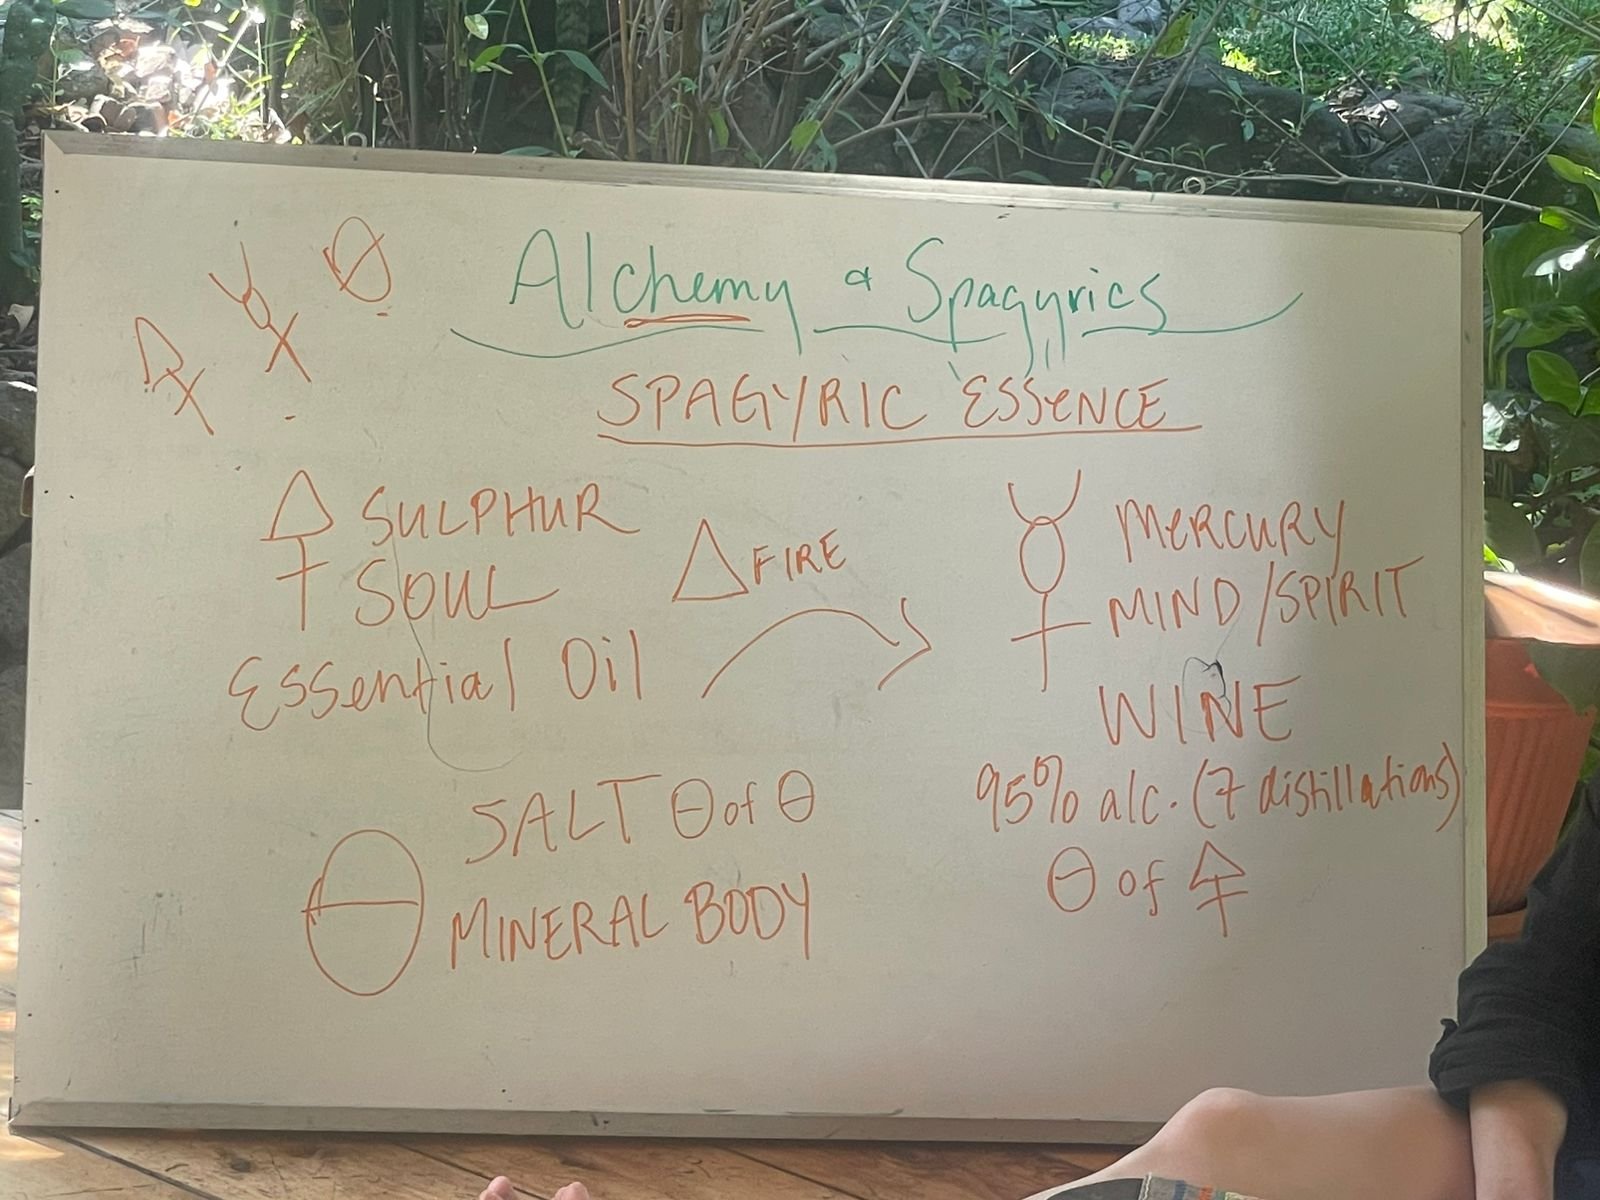 Alchemy & Spagyrics
SPAGYRIC ESSENCE
🜍 SULPHUR
SOUL
Essential Oil
△ FIRE
☿ MERCURY
MIND/SPIRIT
WINE
95% alc. (7 distillations)
⊖ of 🜍
SALT ⊖ of ⊖
⊖ MINERAL BODY